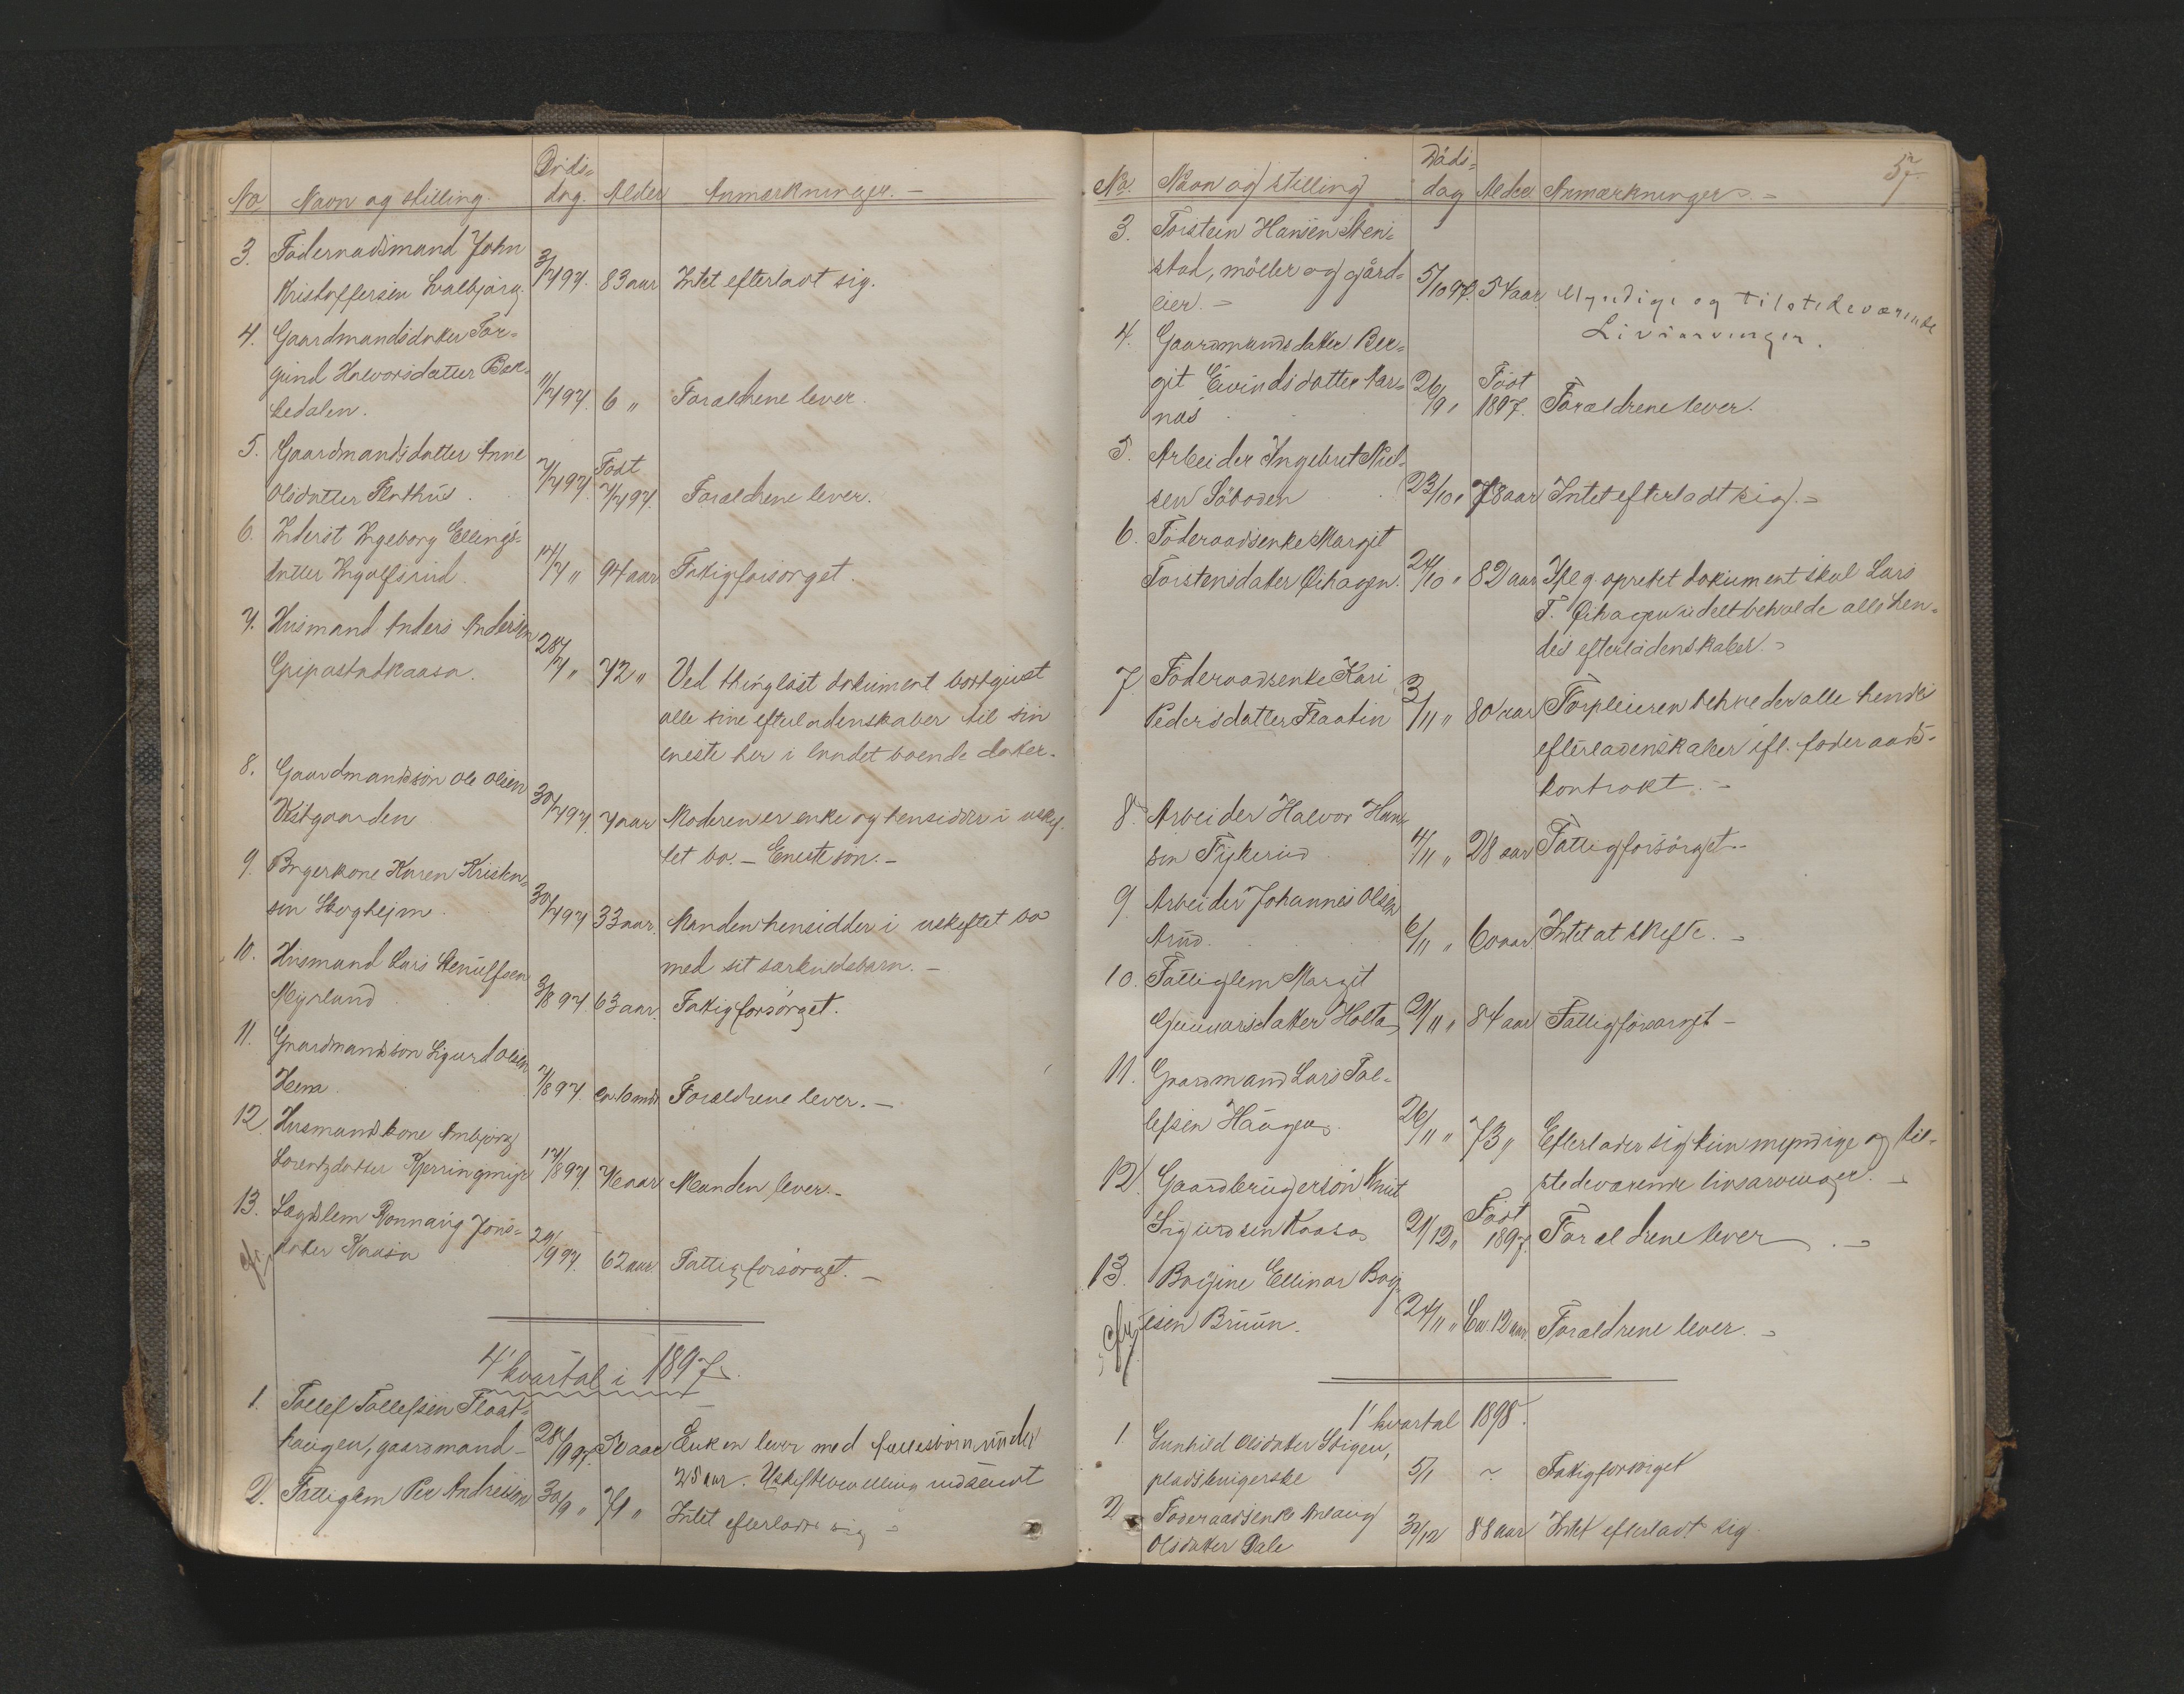 No Navn og stilling. Døds-
dag. Alder Anmærkninger. —
3. Föderaadsmand John
Kristoffersen 3/7 97. 83 aar Intet efterladt sig.
4. Gaardmandsdatter Tor-
gund Halvorsdatter Bak-
kedalen. 11/7 97. 6 " Forældrene lever.
5. Gaardmandsdatter Anne
Olsdatter Flathus. 7/7 97. Född 7/7 97. Forældrene lever.
6. Inderst Ingeborg Ellings-
datter Ingolfsrud. 14/7 " 94 aar Fattigforsörget.
7. Husmand Anders Andersen
28/7 " 72 " Ved thinglæst dokument bortgivet
alle sine efterladenskaber til sin
eneste her i landet boende datter.
8. Gaardmandssön Ole Olsen
Vestgaarden 30/7 97. 7 aar Moderen er enke og hensidder i uskif-
tet bo. — Eneste sön. —
9. Karen Kristen-
sen Skogheim. 30/7 97 33 aar. Manden hensidder i uskiftet bo
med sit særkuldsbarn. —
10. Husmand Lars Stenulfsen
Myrland 3/8 97. 63 aar. Fattigforsörget.
11. Gaardmandssön Sigurd Olsen
Heim. 7/8 97. ca 10 mdr Forældrene lever. —
12. Husmandskone Anbjörg
Lorentzdatter Kjerringmyr 14/8 97. aar Manden lever. —
13. Lægdslem Rønnaug Jons-
datter Kaasa 29/9 97. 62 aar. Fattigforsörget. —
4' kvartal i 1897.
1. Tollef Tollefsen Flaat-
haugen, gaardmand — 28/9 97. 50 aar Enken lever med fællesbörn under
25 aar. indsendt
2. Fattiglem Per Andresen 30/9 " 71 " Intet efterladt sig —
57.
No. Navn og stilling Döds-
dag Alder Anmærkninger. —
3. Torstein Hansen Sten-
stad, möller og gård-
eier. — 5/10 97. 54 aar Myndige og tilstedeværende
Livsarvinger.
4. Gaardmandsdatter Ber-
git Eivindsdatter Aar-
næs 26/9 " Föðt 1897. Forældrene lever.
5. Arbeider Ingebret Niel-
sen Söboden 23/10 " 78 aar Intet efterladt sig. —
6. Föderaadsenke Margit
Torstensdatter Øihagen. 24/10 " 82 aar Iflg. oprettet dokument skal Lars
T. Øihagen udelt beholde alle hen-
des efterladenskaber. —
7 Föderaadsenke Kari
Pedersdatter Flaatin 3/11 " 80 aar Forpleieren beholder alle hendes
efterladenskaber ifl. föderaads-
kontrakt. —
8. Arbeider Halvor Han-
sen 4/11 " 28 aar Fattigforsörget. —
9. Arbeider Johannes Olsen
Arud. 6/11 " 60 aar Intet at skifte. —
10. Fattiglem Margit
Gunnarsdatter Holta 9/11 " 84 aar Fattigforsörget —
11. Gaardmand Lars Tol-
lefsen Haugen 26/11 " 73 " Efterlader sig kun myndige og til-
stedeværende livsarvinger. —
12. Gaardbrugersön Knut
Sigurdsen Kaasa 21/12 " Födt 1897. Forældrene lever. —
13. Borgine Ellinor Borg-
esen Bruun. 24/11 " Ca. 12 aar. Forældrene lever. —
1' kvartal 1898.
1. Gunhild Olsdatter Stigen,
pladsbrugerske 5/1 ~ Fattigforsörget
2. Föderaadsenke Anlaug
Olsdatter Dale 30/12 88 aar Intet efterladt sig